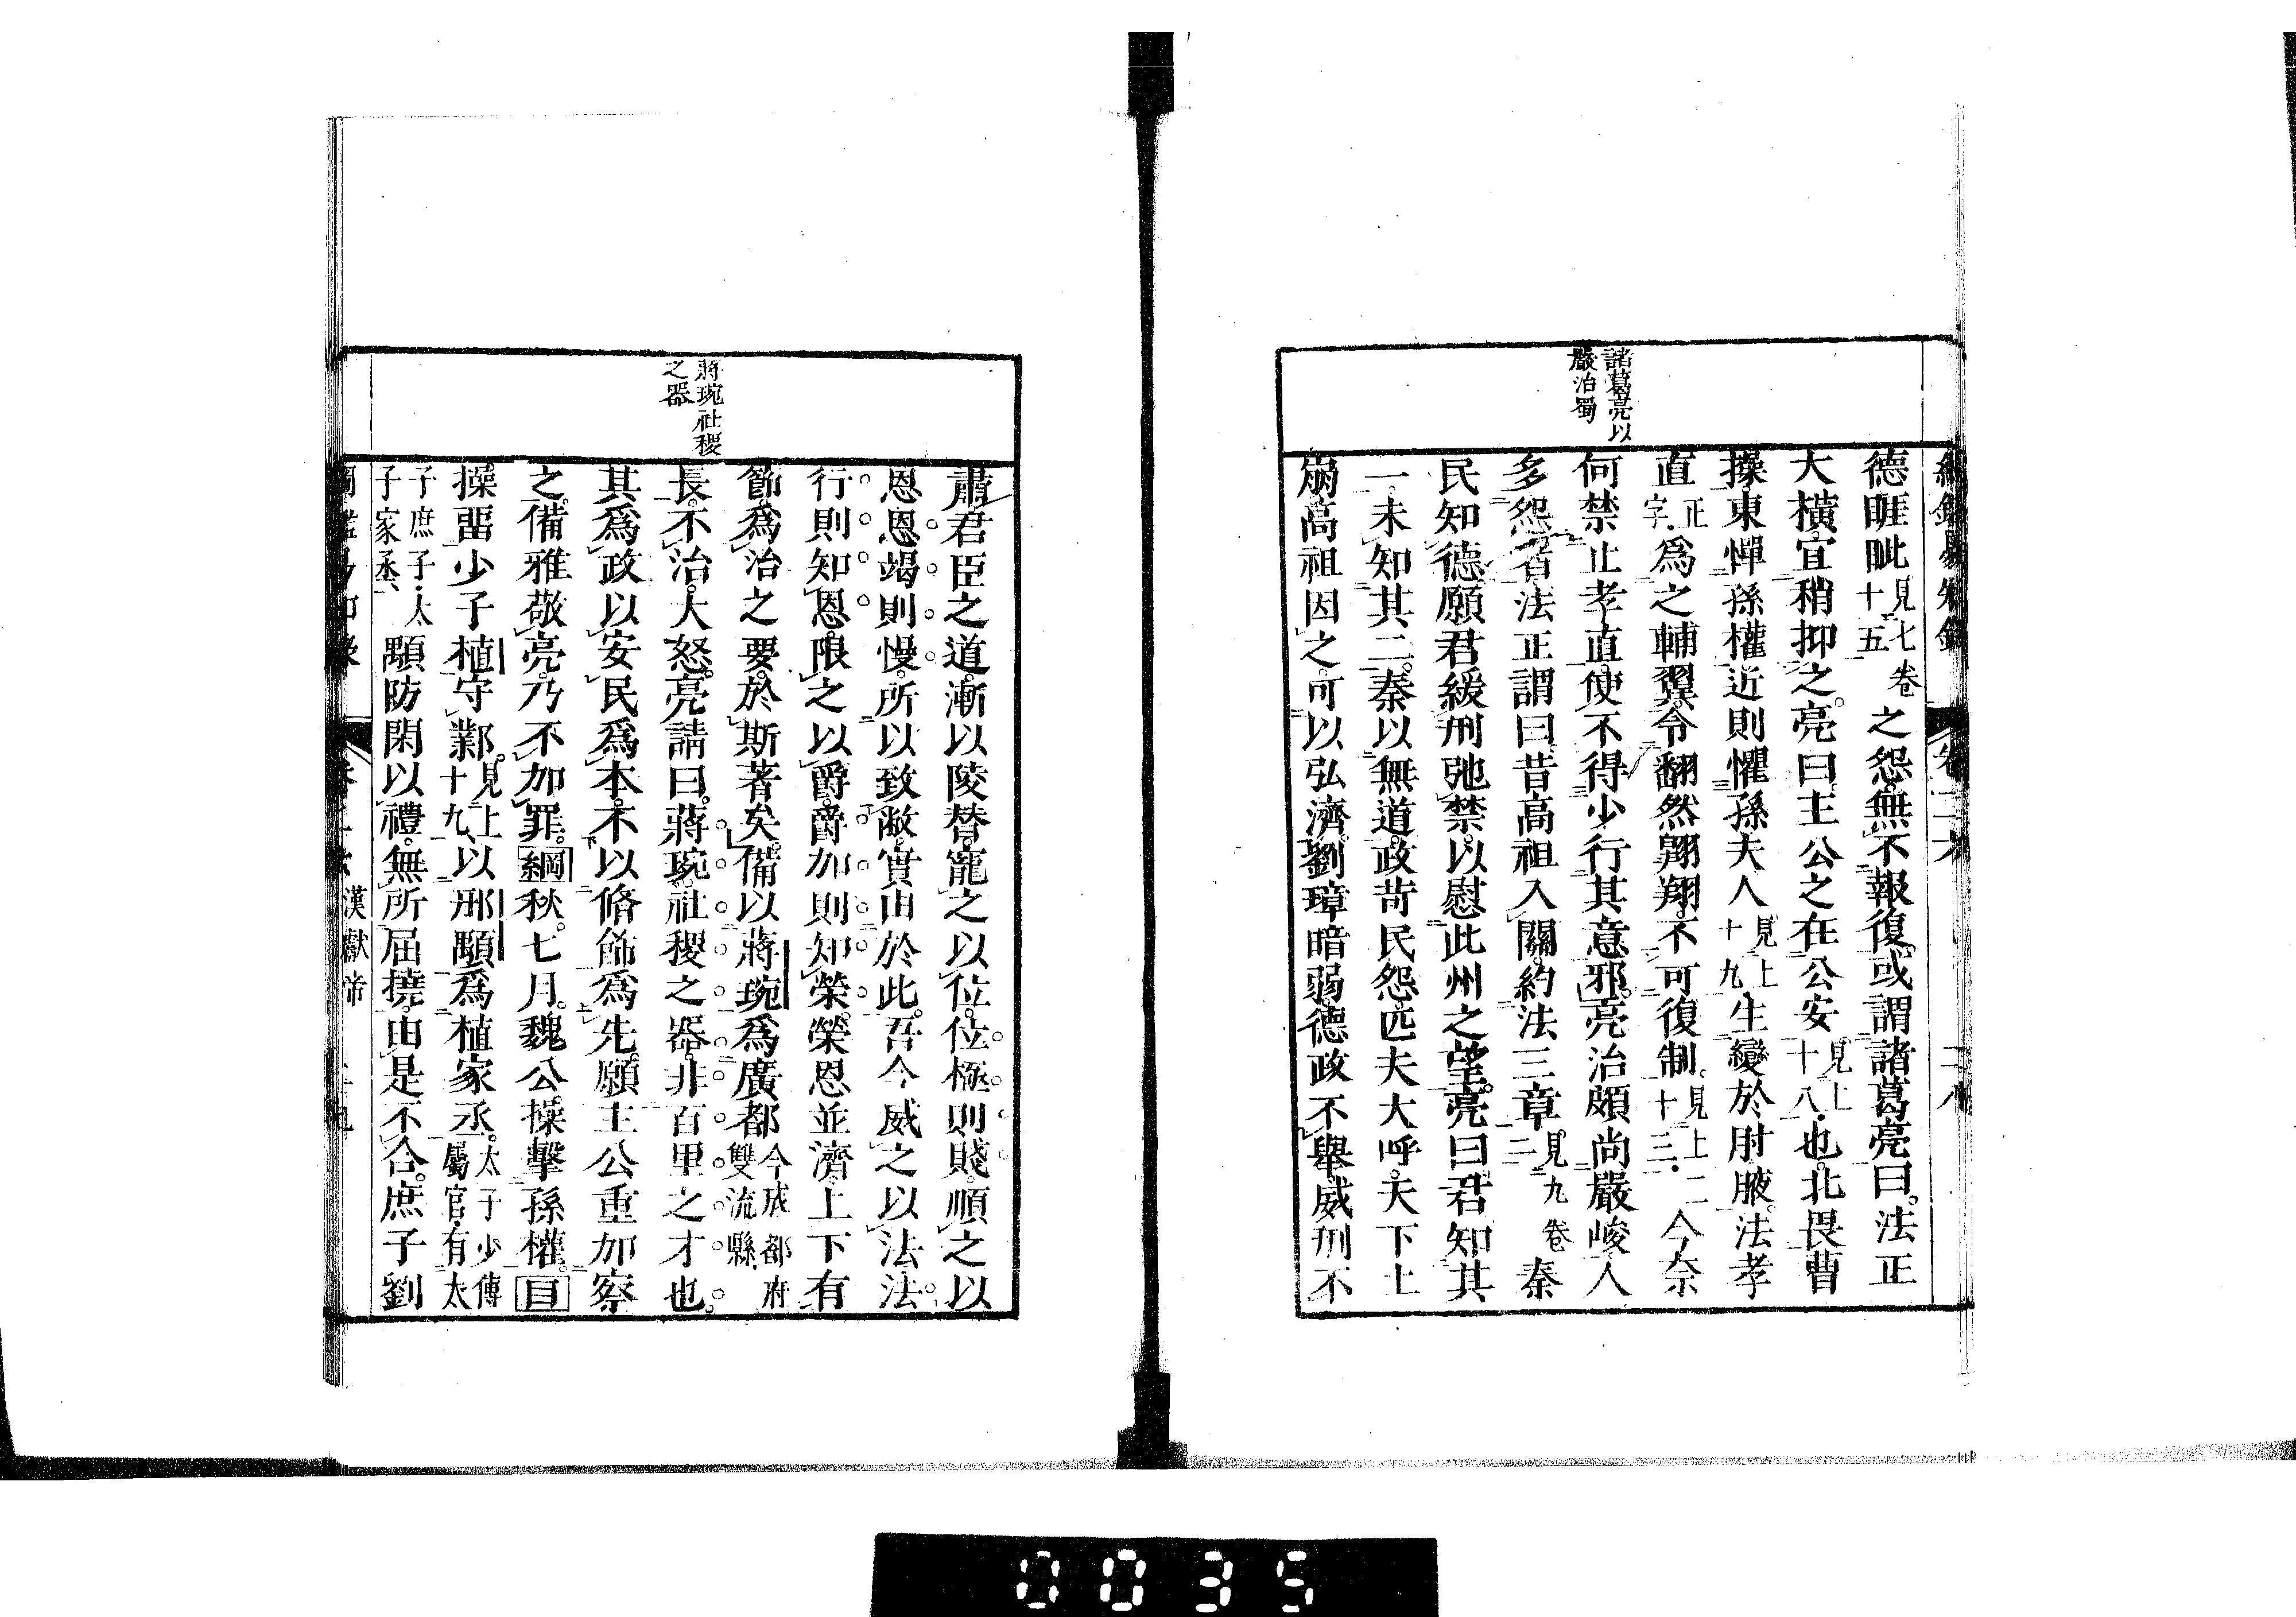 諸葛亮以
嚴治蜀
德睚眦見七卷十五之怨。無不報復。或謂諸葛亮曰。法正
大橫。宜稍抑之。亮曰。主公之在公安見上十八也。北畏曹
操。東憚孫權。近則懼孫夫人見上十九生變於肘腋。法孝
直正字。爲之輔翼。令翻然翺翔。不可復制。見上二十三。今奈
何禁止孝直。使不得少行其意邪。亮治頗尚嚴峻。人
多怨者。法正謂曰。昔高祖入關。約法三章。見九卷二秦
民知德。願君緩刑弛禁。以慰此州之望。亮曰。君知其
一。未知其二。秦以無道。政苛民怨。匹夫大呼。天下土
崩。高祖因之。可以弘濟。劉璋暗弱。德政不舉。威刑不
蔣琬社稷
之器
肅。君臣之道。漸以陵替。寵之以位。位極則賤。順之以
恩。恩竭則慢。所以致敝。實由於此。吾今威之以法。法
行則知恩。限之以爵。爵加則知榮。榮恩並濟。上下有
節。爲治之要。於斯著矣。備以蔣琬爲廣都今成都府雙流縣
長。不治。大怒。亮請曰。蔣琬。社稷之器。非百里之才也。
其爲政以安民爲本。不以脩飾爲先。願主公重加察
之。備雅敬亮。乃不加罪。綱秋。七月。魏公操擊孫權。目
操畱少子植守鄴。見上十九以邢顒爲植家丞。太子少傅屬官。有太
子庶子。太子家丞。顒防閑以禮。無所屈撓。由是不合。庶子劉
漢獻帝
0035